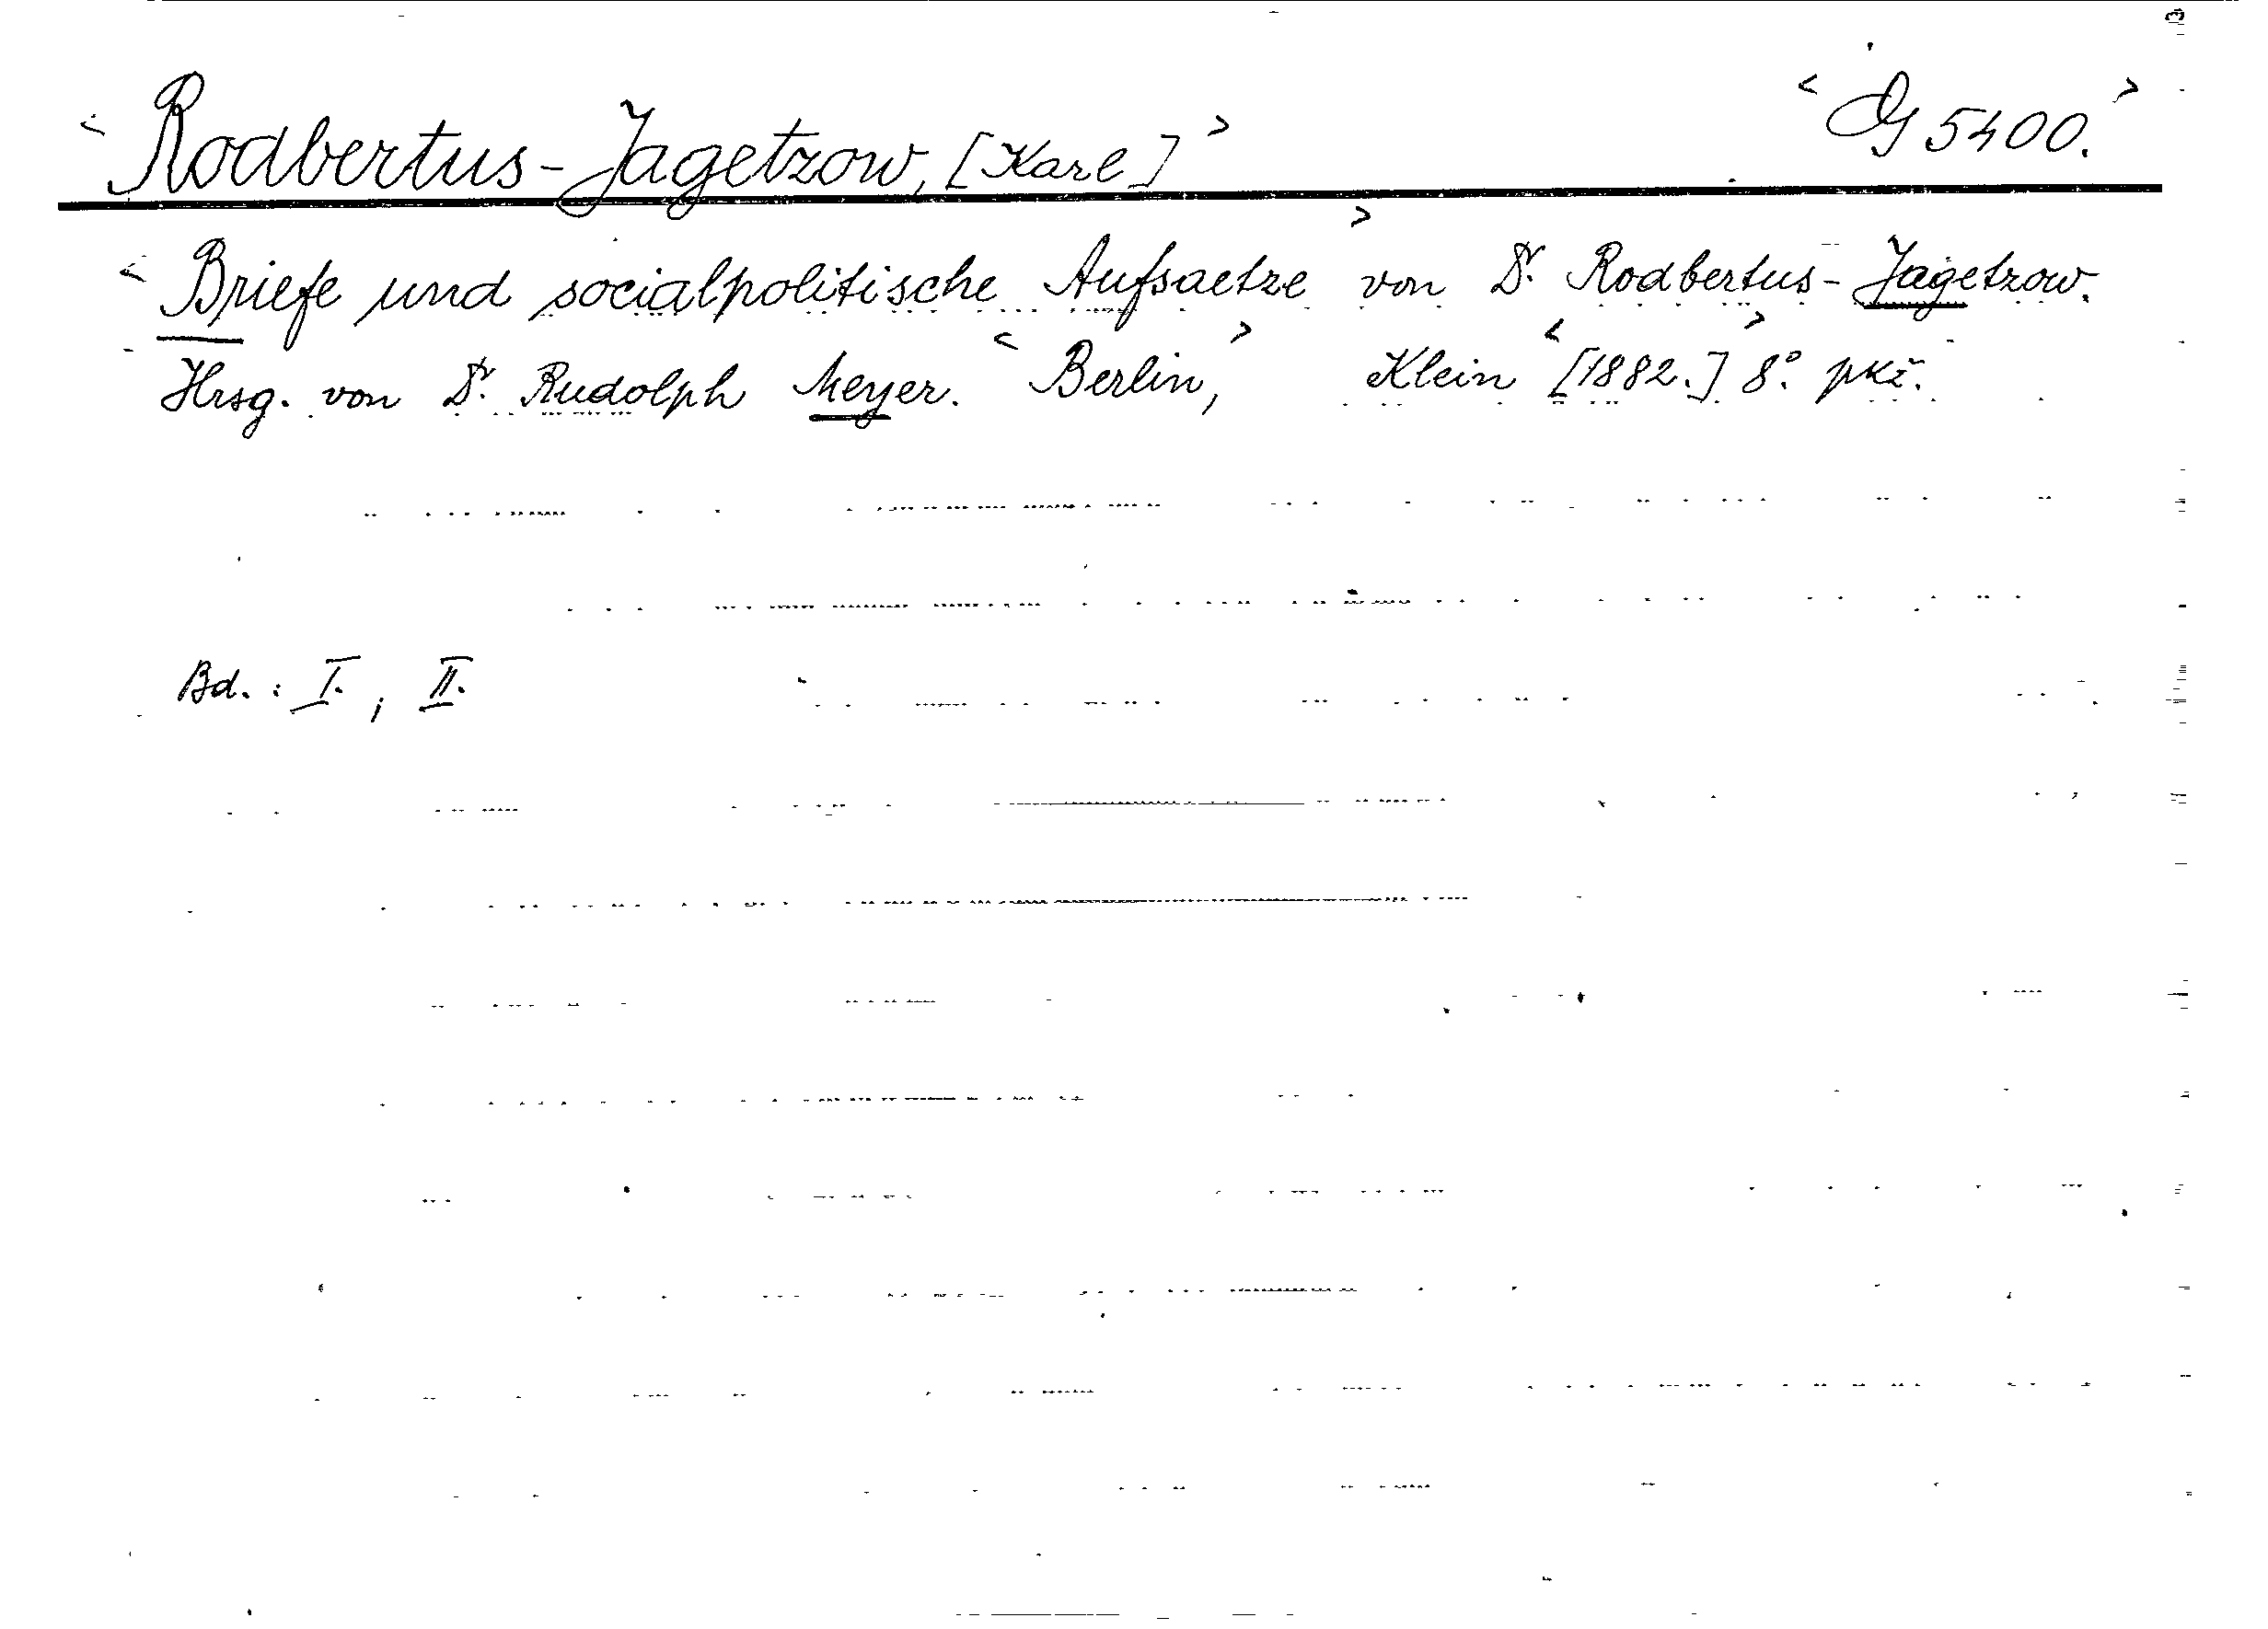 < Rodbertus-Jagetzow, [Karl] > < G 5400. >
< Briefe und socialpolitische Aufsaetze > von Dr. Rodbertus-Jagetzow.
Hrsg. von Dr. Rudolph Meyer. < Berlin, > Klein < [1882.] > 8°. pkž.
Bd.: I., II.